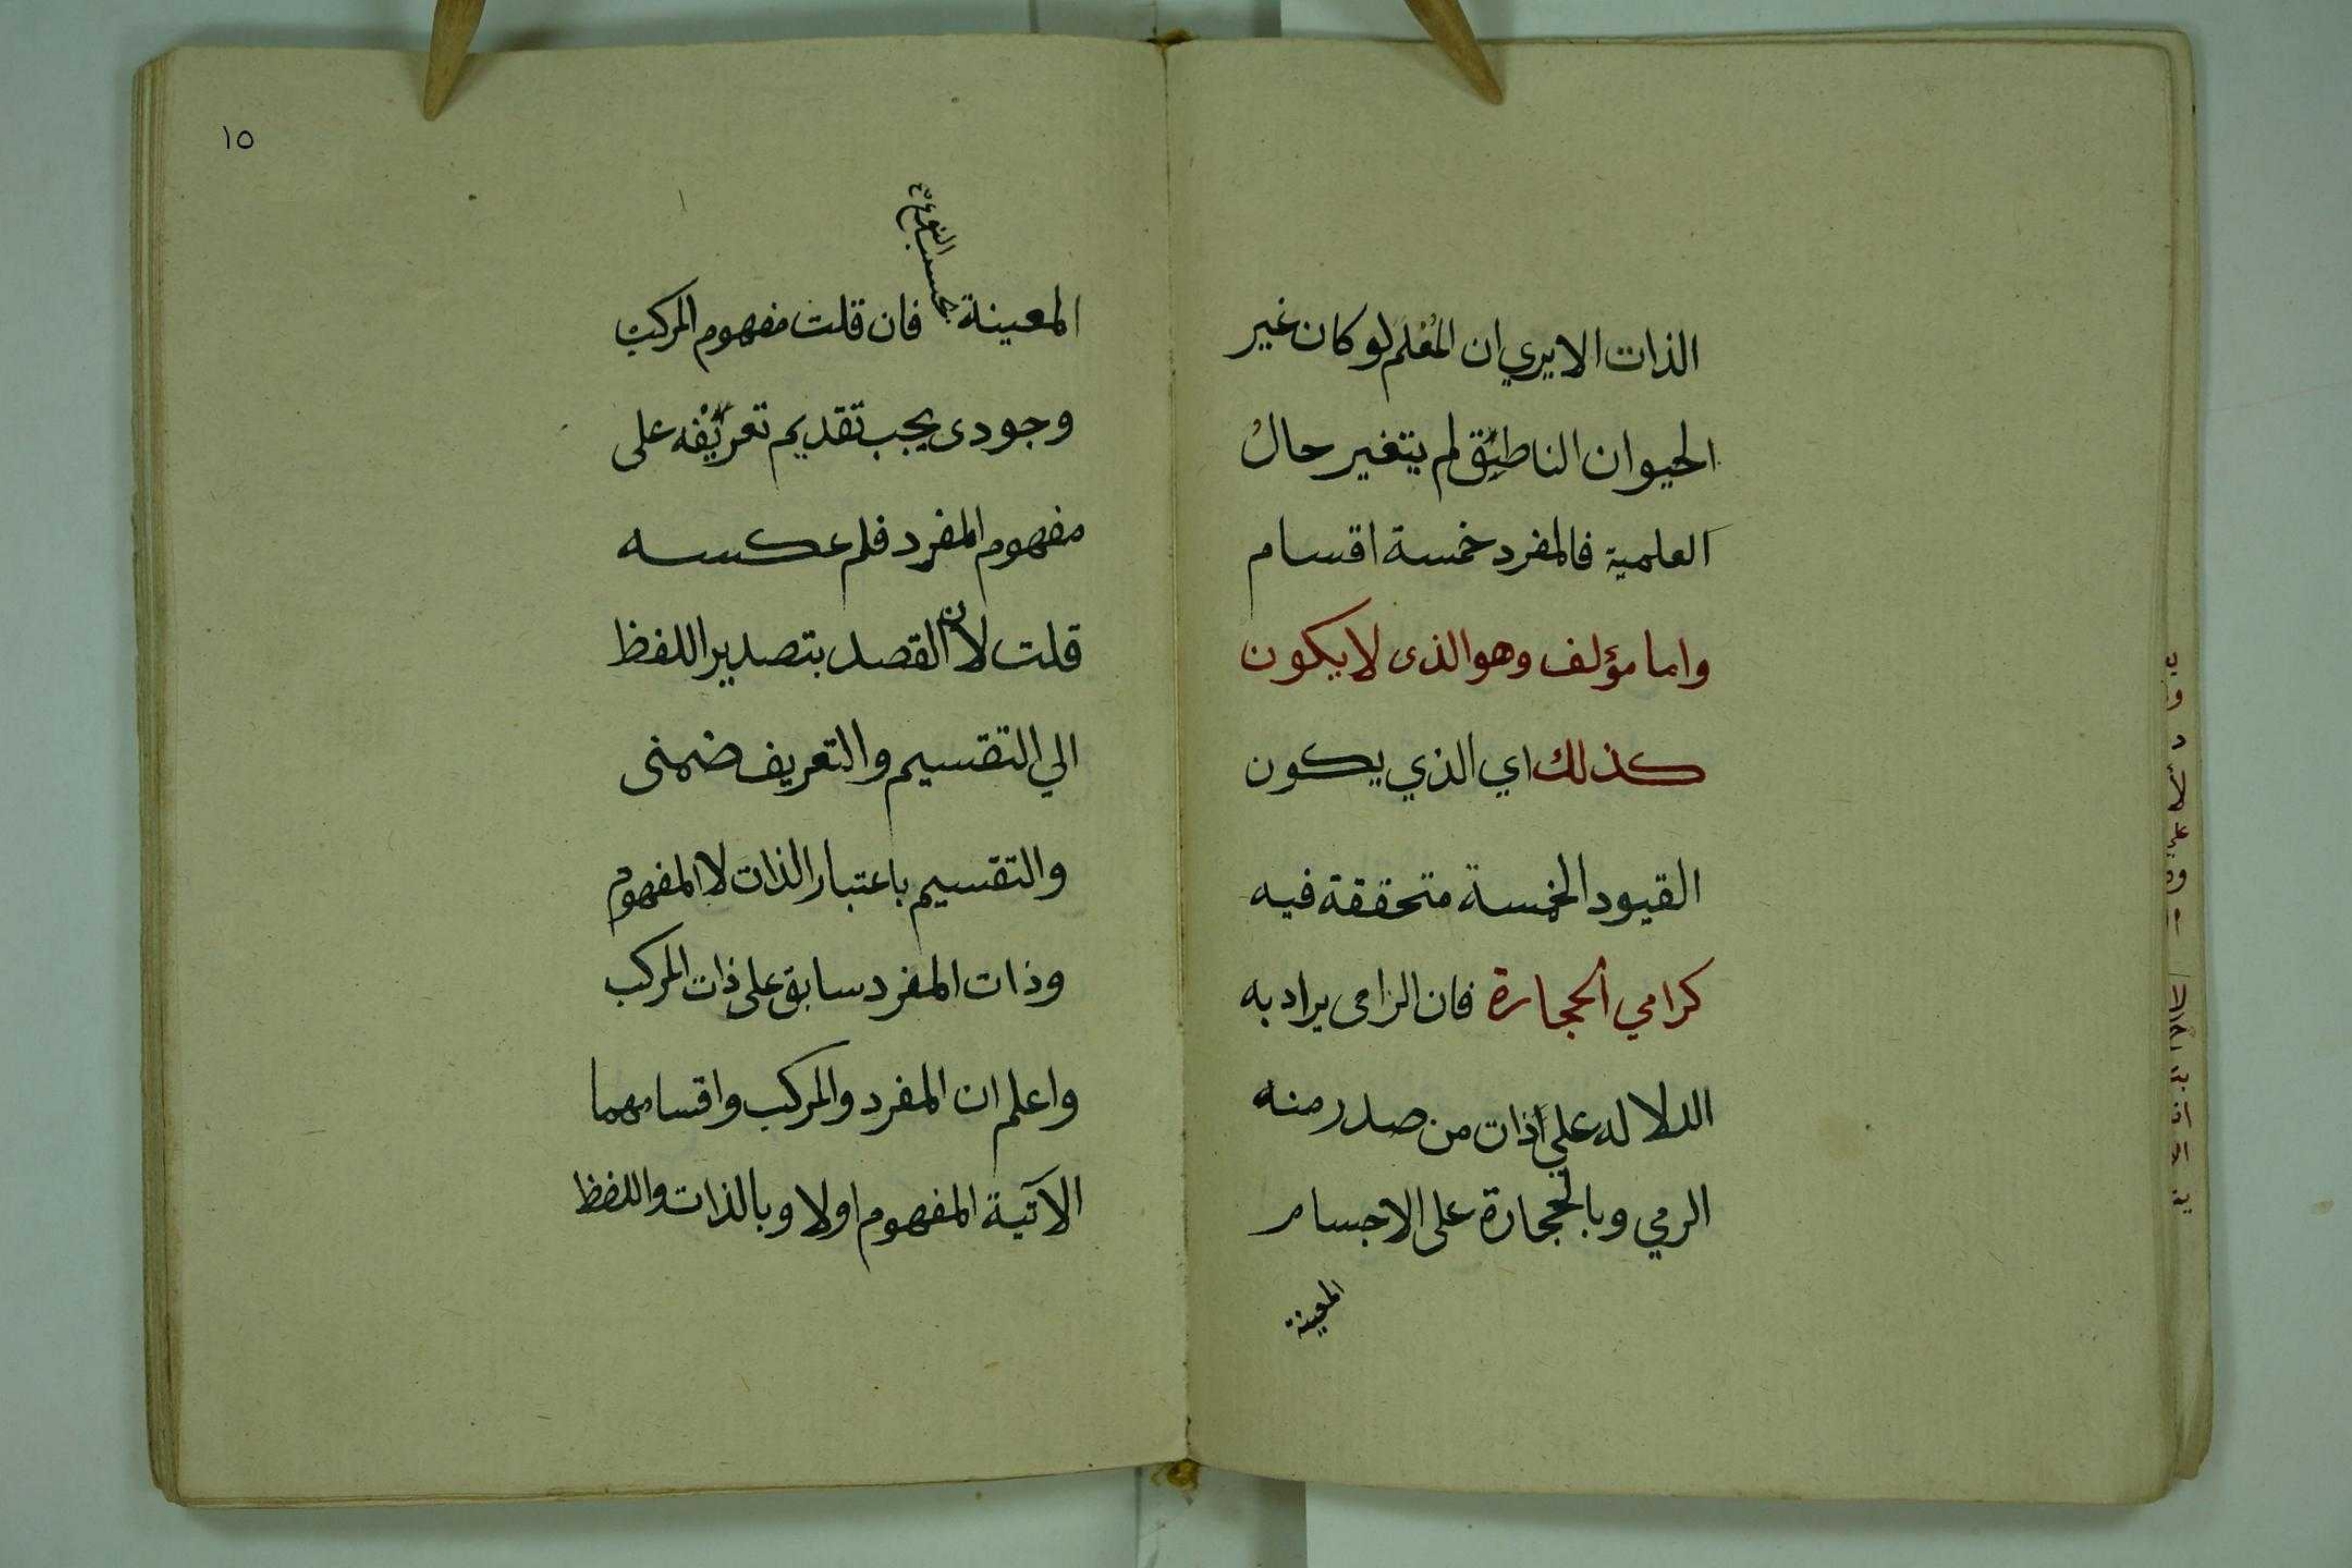 الذات الايري ان المعلم لو كان غير
الحيوان الناطق لم يتغير حال
العلمية فالمفرد خمسة اقسام
واما مؤلف وهو الذى لا يكون
كذلك اي الذي يكون
القيود الخمسة متحققة فيه
كرامي الحجارة فان الرامى يراد به
الدلاله علي ذات من صدر منه
الرمي وبالحجارة على الاجسام
المعينة
١٥
المعينة بحسب النوع فان قلت مفهوم المركب
وجودى يجب تقديم تعريفه على
مفهوم المفرد فلم عكسه
قلت لان القصد بتصدير اللفظ
الي التقسيم والتعريف ضمنى
والتقسيم باعتبار الذات لا المفهوم
وذات المفرد سابق على ذات المركب
واعلم ان المفرد والمركب واقسامهما
الآتية المفهوم اولا وبالذات واللفظ